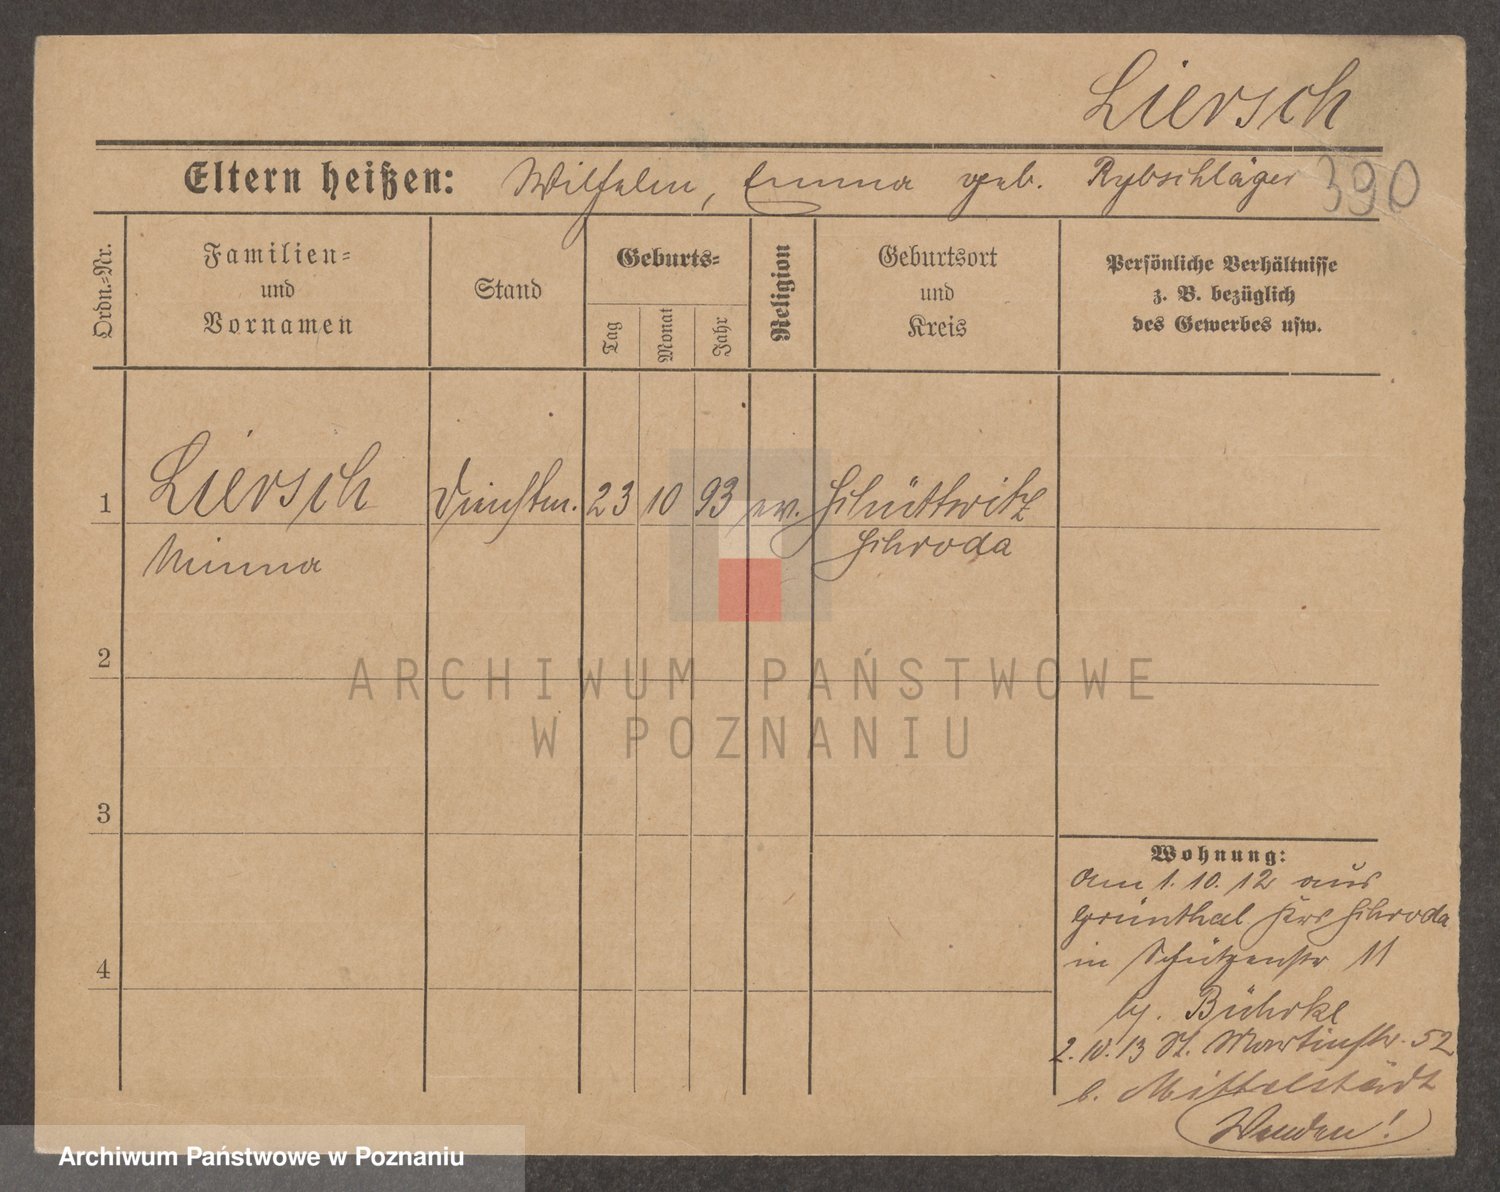 Liersch
Eltern heißen: Wilhelm, Emma geb. Rybschläger 390
Ordn.=Nr.
Familien=
und
Vornamen
Stand
Geburts=
Tag
Monat
Jahr
Religion
Geburtsort
und
Kreis
Persönliche Verhältnisse
z. B. bezüglich
des Gewerbes usw.
1 Liersch Dienstm. 23 10 93 ev. Schüttwitz
Minna Schroda
2
3
4
Wohnung:
Am 1.10.12 aus
Grünthal Krs Schroda
in Schützenstr 11
b. Bührke
2.10.13 St. Martinstr. 52
b. Mittelstädt
Wenden!
ARCHIWUM PAŃSTWOWE
W POZNANIU
Archiwum Państwowe w Poznaniu